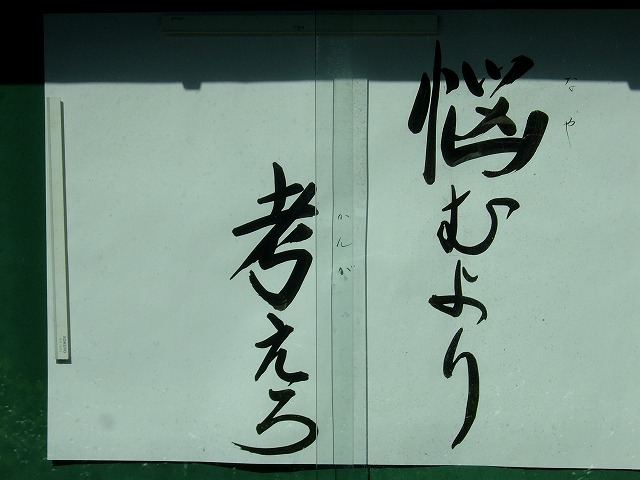 悩むより
なや
考えろ
かんが